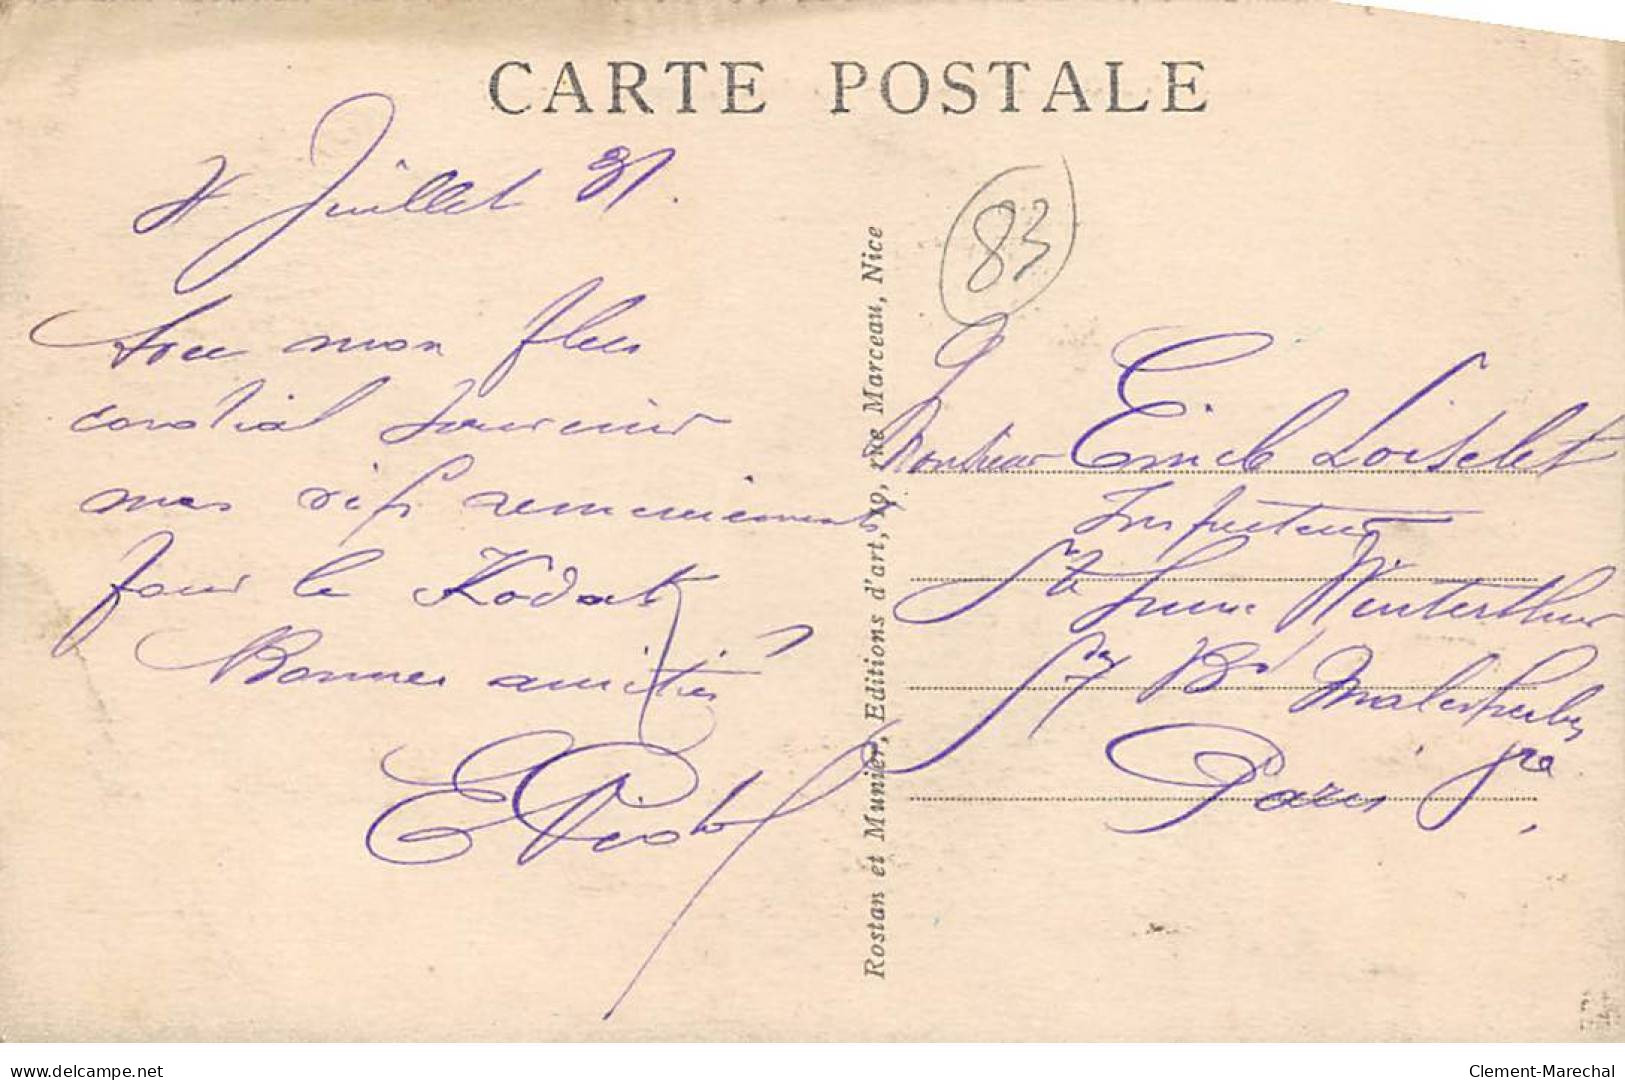 CARTE POSTALE
Juillet 31.
83
Avec mon plus
cordial souvenir
mes vifs remerciements
pour le Kodak
Bonnes amitiés
E Pistol
Rostan et Munier, Editions d'art, 19, rue Marceau, Nice
Monsieur Emile Loiselet
Inspecteur
Sté Suisse Winterthur
57 Bd Malesherbes
Paris
www.delcampe.net
Clement-Marechal